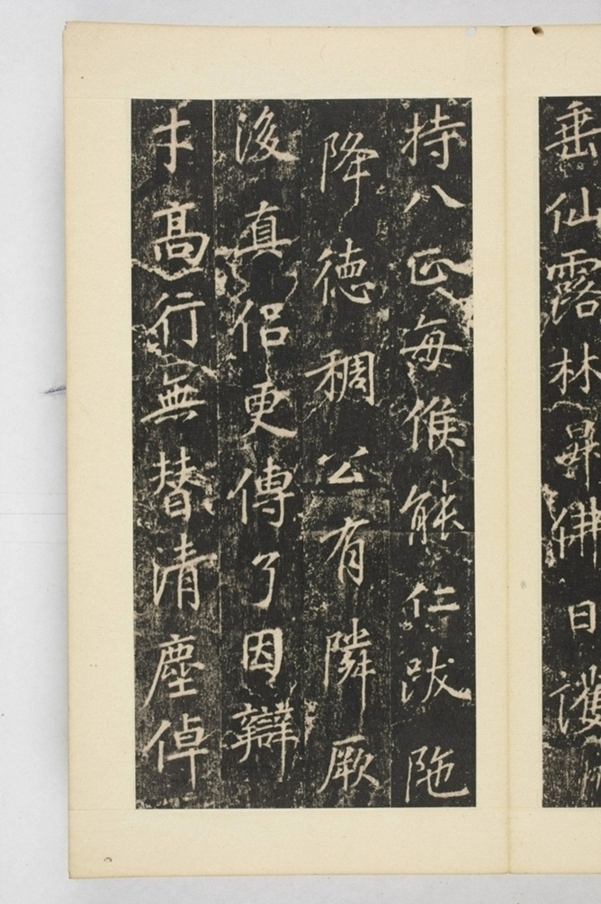 垂仙露林昇佛日護
持八正每候能仁跋陁
降德稠公有隣厥
後真侣更傳了因辯
才高行無替清塵倬